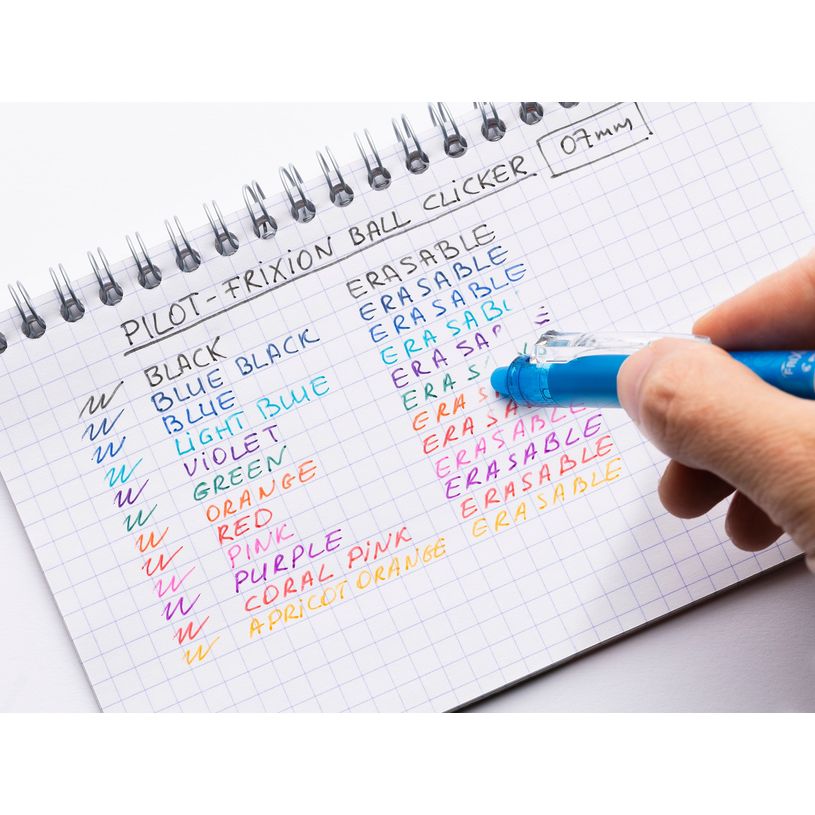 PILOT-FRIXION BALL CLICKER 07mm
BLACK ERASABLE
BLUE BLACK ERASABLE
BLUE ERASABLE
LIGHT BLUE ERASAB
VIOLET ERASA
GREEN ERAS
ORANGE ERAS
RED ERASA
PINK ERASABLE
PURPLE ERASABLE
CORAL PINK ERASABLE
APRICOT ORANGE ERASABLE